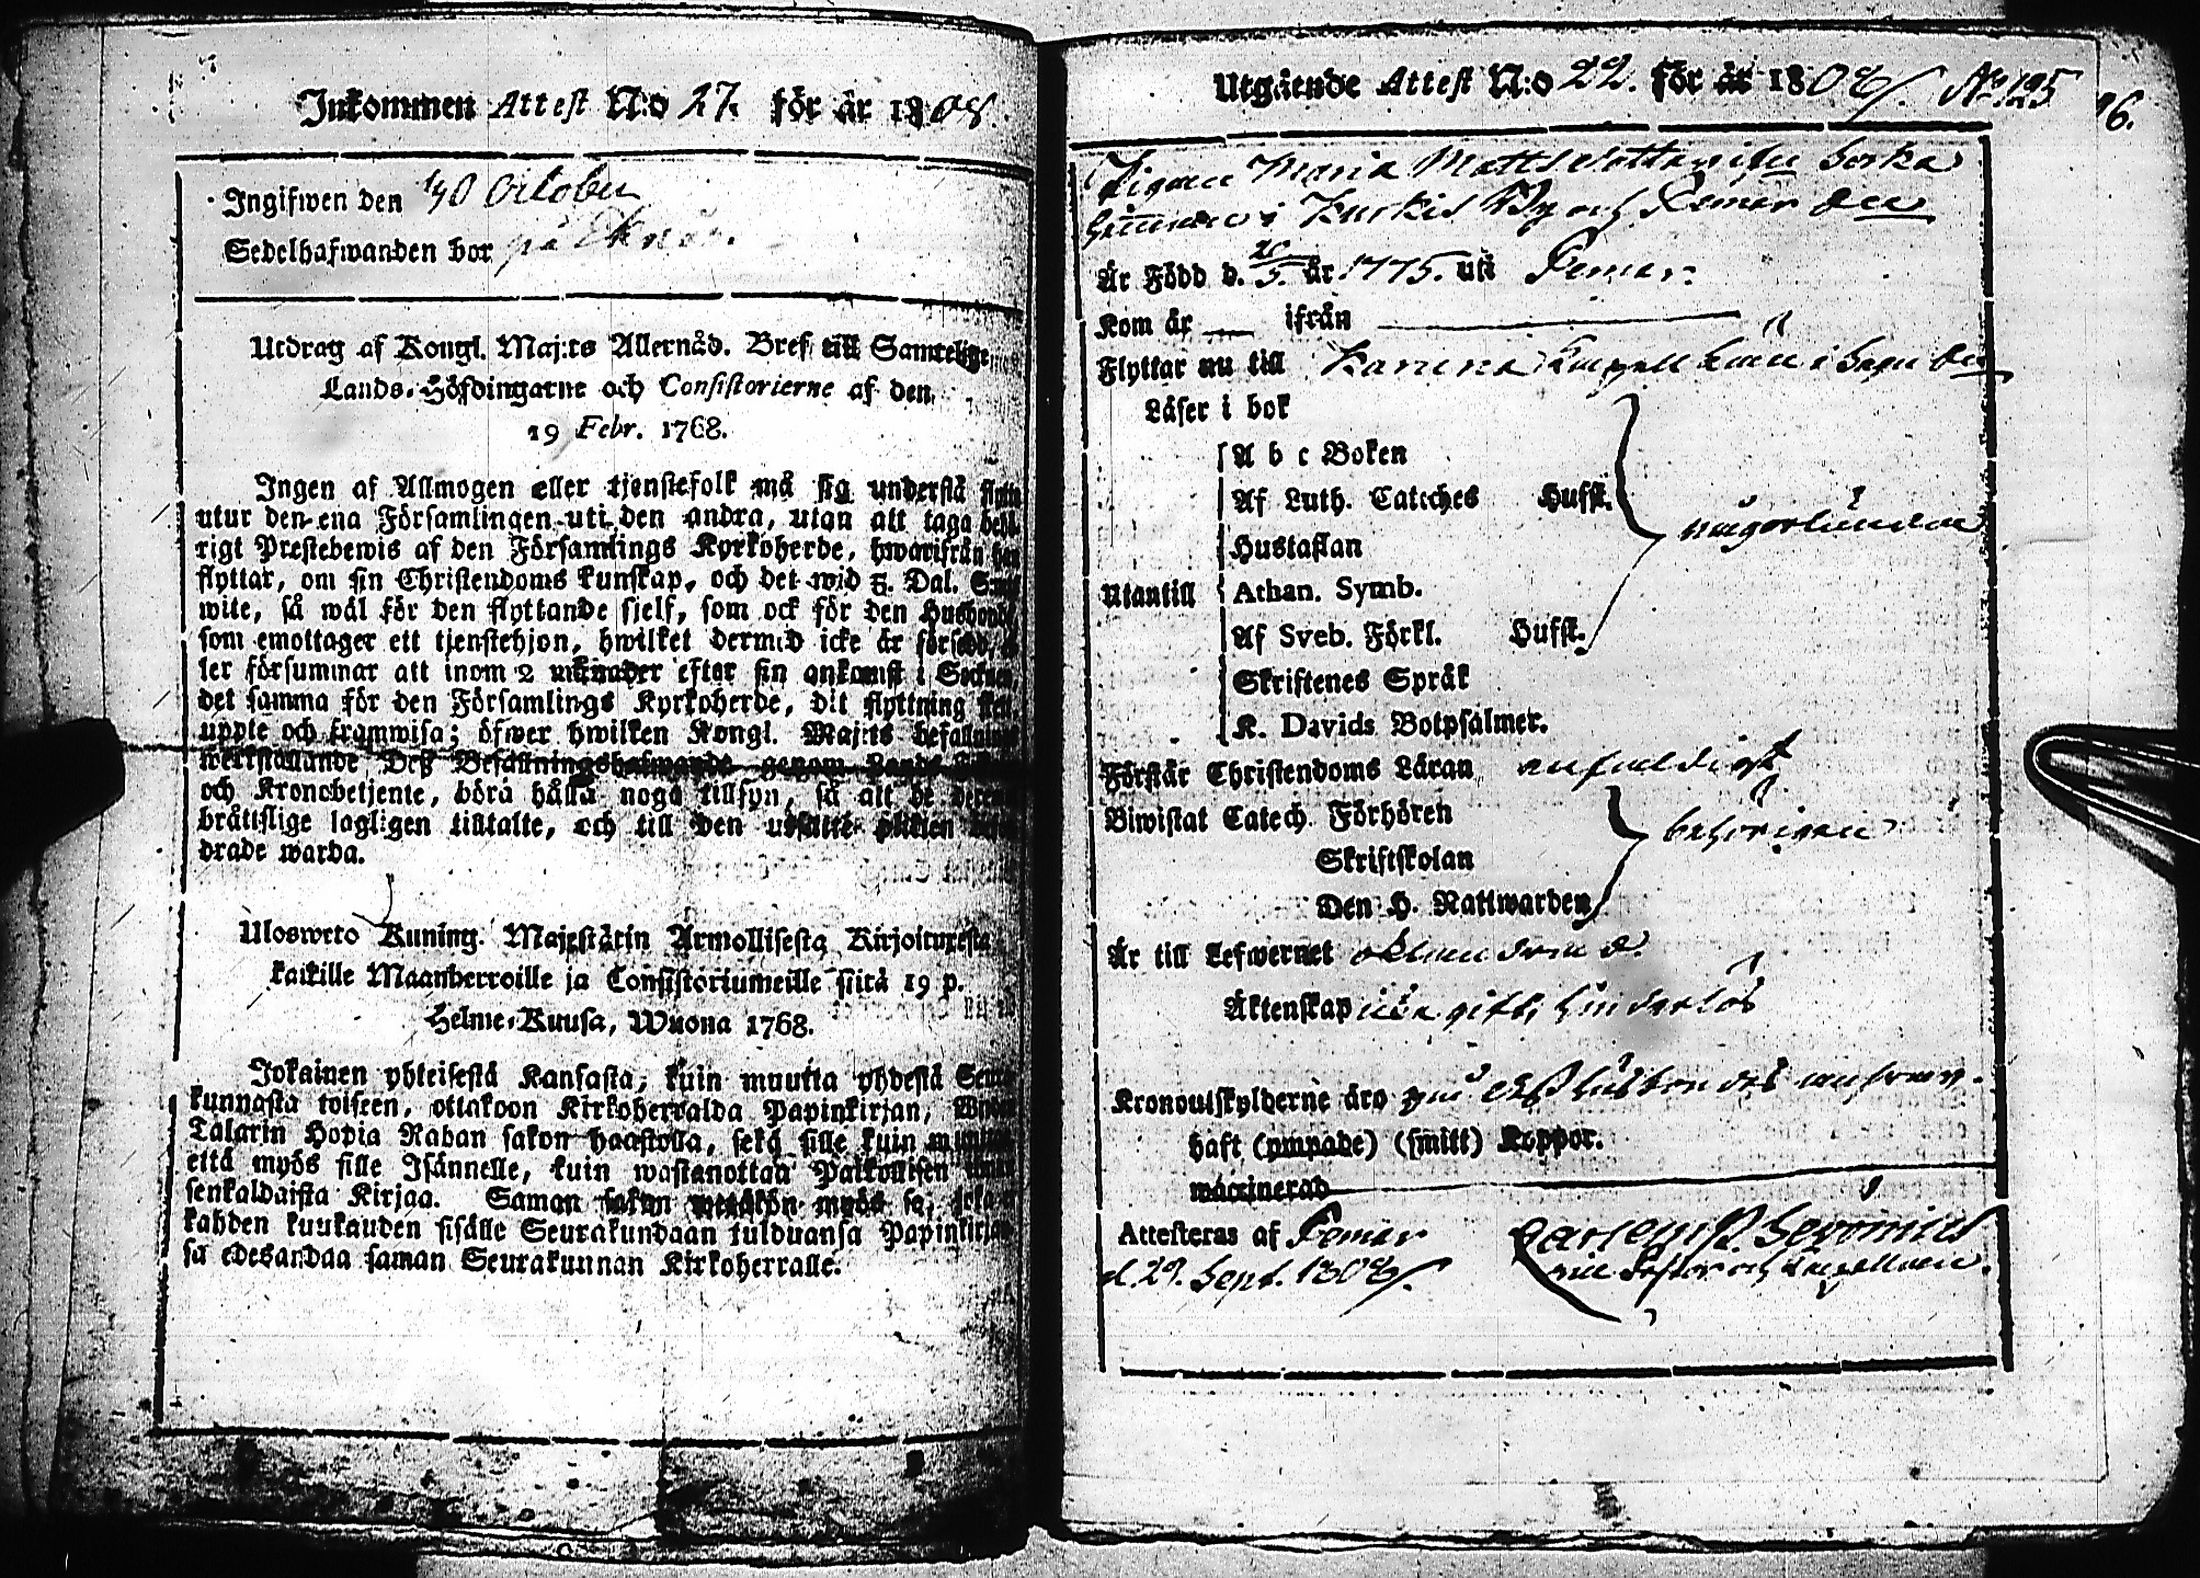 Inkommen Attest N:o 27. för år 1808.
Ingifwen den 1/30 October
Sedelhafwanden bor på Eknäs.
Utdrag af Kongl. Maj:ts Allernåd. Bref till Samtelige
Lands-Höfdingarne och Consistorierne af den
19 Febr. 1768.
Ingen af Allmogen eller tjenstefolk må sig understå flytta
utur den ena Församlingen uti den andra, utan att taga behö-
rigt Prestebewis af den Församlings Kyrkoherde, hwarifrån han
flyttar, om sin Christendoms kunskap, och det wid 5. Dal. S:mts
wite, så wäl för den flyttande sjelf, som ock för den Husbonde,
som emottager ett tjenstehjon, hwilket dermed icke är försedd, el-
ler försummar att inom 2 månader efter sin ankomst i Socknen,
det samma för den Församlings Kyrkoherde, dit flyttning sker,
uppte och framwisa; öfwer hwilken Kongl. Maj:ts befallnings
werkställande Deß Befallningshafwande genom Lands
och Kronobetjente, böra hålla noga tillsyn, så att de
bråttslige lagligen tilltalte, och till den utsatte plikten
drade warda.
Ulosweto Kuning. Majestätin Armollisesta Kirjoituxesta
kaikille Maanherroille ja Consistoriumeille siitä 19 p.
Helme-Kuusa, Wuona 1768.
Jokainen yhteisestä Kansasta, kuin muutta yhdestä Seura-
kunnasta toiseen, ottakoon Kirkoherralda Papinkirjan,
Talarin Hopia Rahan sakon haastolla, sekä sille kuin muutta
että myös sille Isännelle, kuin wastanottaa Palkollisen ilman
senkaldaista Kirjaa. Saman sakon wetäkön myös se, joka
kahden kuukauden sisälle Seurakundaan tulduansa Papinkirjan-
sa edesandaa saman Seurakunnan Kirkoherralle.
Utgående Attest N:o 22. för år 1808. No 125
96.
Pigan Maria Mattsdotter ifrån
i Kurkis By och Pemar
Är Född d. 20/5. år 1775. uti Pemar.
Kom år — ifrån —
Flyttar nu till Karuna Kapell
Läser i bok
A b c Boken
Af Luth. Catches Husst.
Hustaflan någorlunda
Utantill Athan. Symb.
Af Sveb. Förkl. Husst.
Skriftenes Språk
K. Davids Botpsalmer.
Förstår Christendoms Läran enfaldigt
Biwistat Catech. Förhören
Skriftskolan behörigen
Den H. Nattwarden
Är till Lefwernet oklandrad.
Äktenskap icke gift, hinderlös
Kronoutskylderne äro
haft (ympade) (smitt) Koppor.
waccinerad —
Attesteras af Pemar
d. 29. Sept. 1808.